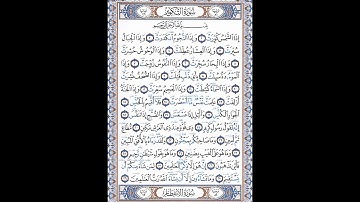 سُورَةُ التَّكْوِيرِ
بِسْمِ اللَّهِ الرَّحْمَٰنِ الرَّحِيمِ
إِذَا الشَّمْسُ كُوِّرَتْ وَإِذَا النُّجُومُ انكَدَرَتْ وَإِذَا الْجِبَالُ
سُيِّرَتْ وَإِذَا الْعِشَارُ عُطِّلَتْ وَإِذَا الْوُحُوشُ حُشِرَتْ
وَإِذَا الْبِحَارُ سُجِّرَتْ وَإِذَا النُّفُوسُ زُوِّجَتْ وَإِذَا
الْمَوْءُودَةُ سُئِلَتْ بِأَيِّ ذَنبٍ قُتِلَتْ وَإِذَا الصُّحُفُ
نُشِرَتْ وَإِذَا السَّمَاءُ كُشِطَتْ وَإِذَا الْجَحِيمُ سُعِّرَتْ وَإِذَا الْجَنَّةُ
أُزْلِفَتْ عَلِمَتْ نَفْسٌ مَّا أَحْضَرَتْ فَلَا أُقْسِمُ بِالْخُنَّسِ
الْجَوَارِ الْكُنَّسِ وَاللَّيْلِ إِذَا عَسْعَسَ وَالصُّبْحِ إِذَا تَنَفَّسَ
إِنَّهُ لَقَوْلُ رَسُولٍ كَرِيمٍ ذِي قُوَّةٍ عِندَ ذِي الْعَرْشِ مَكِينٍ مُّطَاعٍ
ثَمَّ أَمِينٍ وَمَا صَاحِبُكُم بِمَجْنُونٍ وَلَقَدْ رَآهُ بِالْأُفُقِ
الْمُبِينِ وَمَا هُوَ عَلَى الْغَيْبِ بِضَنِينٍ وَمَا هُوَ بِقَوْلِ شَيْطَانٍ رَّجِيمٍ
فَأَيْنَ تَذْهَبُونَ إِنْ هُوَ إِلَّا ذِكْرٌ لِّلْعَالَمِينَ لِمَن شَاءَ مِنكُمْ أَن
يَسْتَقِيمَ وَمَا تَشَاءُونَ إِلَّا أَن يَشَاءَ اللَّهُ رَبُّ الْعَالَمِينَ
سُورَةُ الِانفِطَارِ